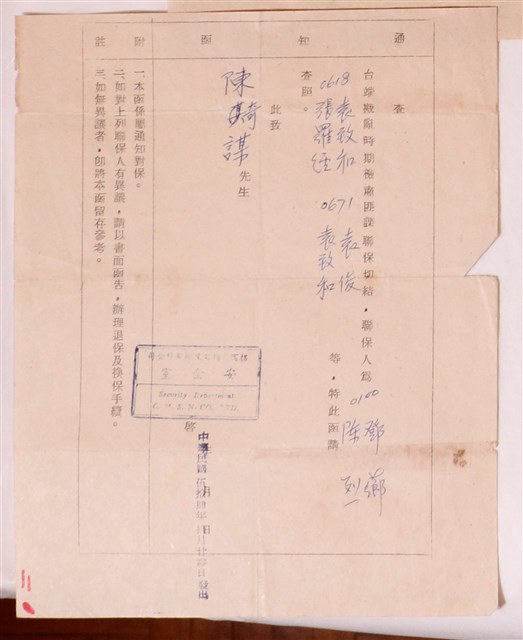 通知函
查
台端戡亂時期檢肅匪諜聯保切結，聯保人為 0100 鄧薌 陳烈
0618 袁致和 張羅經 0671 袁俊 袁致和 等，特此函請
查照。
此致
陳 謀 先生
安全室
Security Department
啓
中華民國伍拾 年 月廿 日發出
附註
一、本函係屬通知對保。
二、如對上列聯保人有異議，請以書面函告，辦理退保及換保手續。
三、如無異議者，即將本函留存參考。